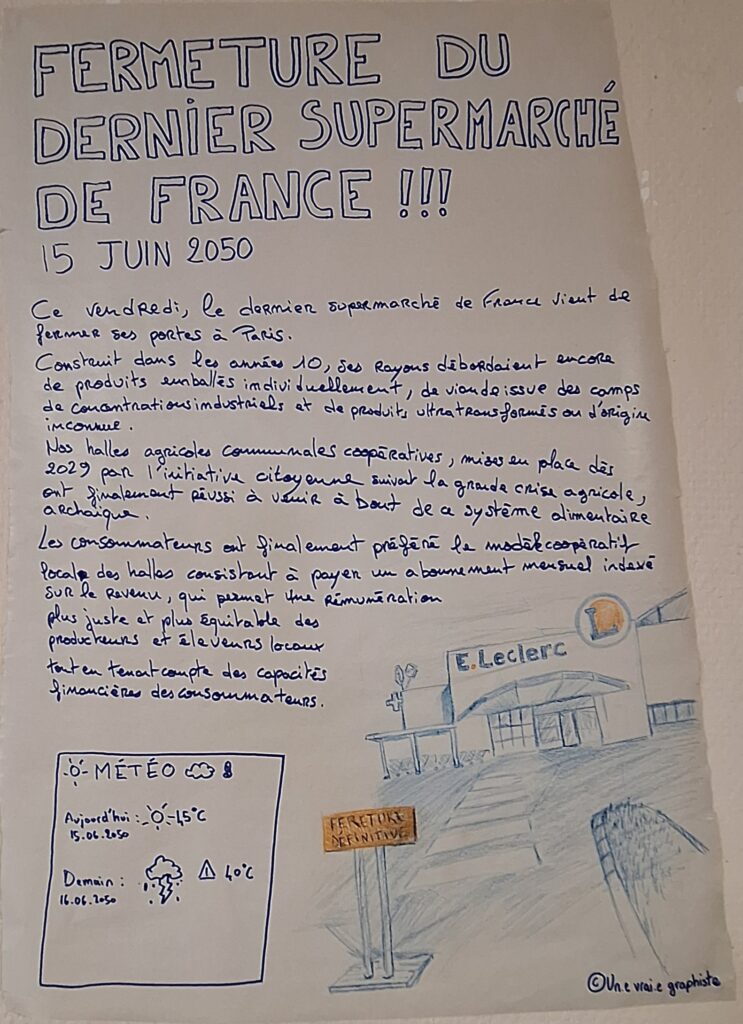 FERMETURE DU
DERNIER SUPERMARCHÉ
DE FRANCE !!!
15 JUIN 2050
Ce vendredi, le dernier supermarché de France vient de
fermer ses portes à Paris.
Construit dans les années 10, ses rayons débordaient encore
de produits emballés individuellement, de viande issue des camps
de concentrations industriels et de produits ultratransformés ou d'origine
inconnue.
Nos halles agricoles communales coopératives, mises en place dès
2029 par l'initiative citoyenne suivant la grande crise agricole,
ont finalement réussi à venir à bout de ce système alimentaire
archaïque.
Les consommateurs ont finalement préféré le modèle coopératif
locale des halles consistant à payer un abonnement mensuel indexé
sur le revenu, qui permet une rémunération
plus juste et plus équitable des
producteurs et éleveurs locaux
tout en tenant compte des capacités
financières des consommateurs.
E.Leclerc
L
MÉTÉO
Aujourd'hui : 45°C
15.06.2050
Demain : 40°C
16.06.2050
FERETURE
DÉFINITIVE
©Un.e vrai.e graphiste